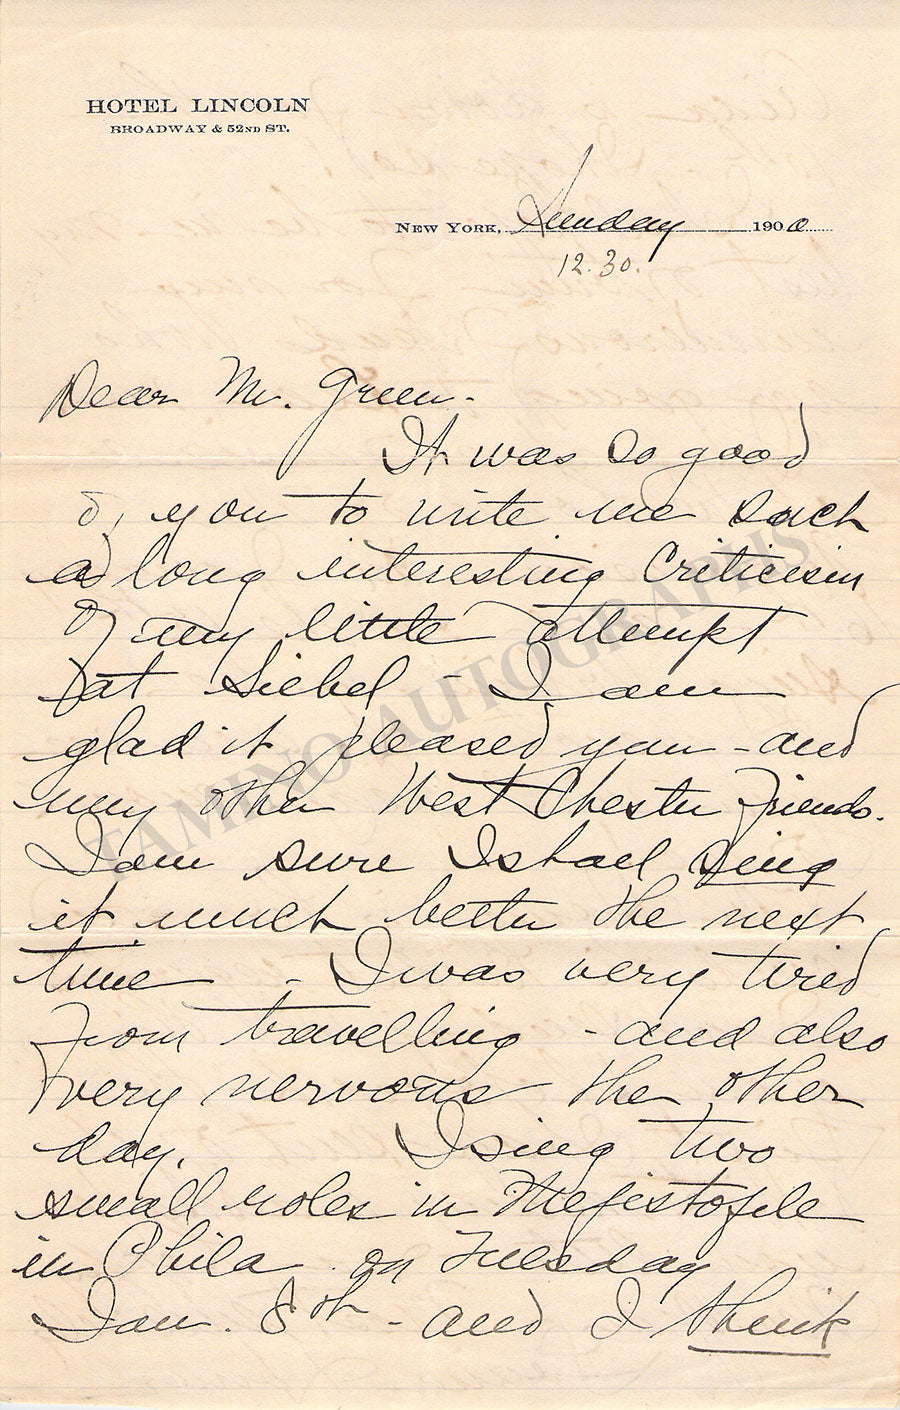 HOTEL LINCOLN
BROADWAY & 52ND ST.
NEW YORK, Sunday 1900
12.30.
Dear Mr. Green -
It was so good
of you to write me such
a long interesting Criticism
of my little attempt
at Siebel - I am
glad it pleased you - and
my other West Chester friends.
I am sure I shall sing
it much better the next
time - I was very tired
from travelling - and also
very nervous the other
day. I sing two
small roles in Mefistofele
in Phila on Tuesday
Jan. 8th - and I think
TAMINO AUTOGRAPHS